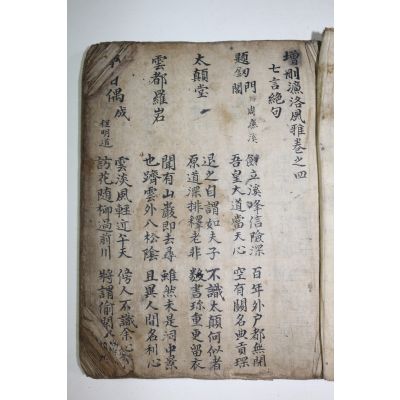 增刪濂洛風雅卷之四
七言絶句
題釰門 周濂溪
釰立溪峰信險深 百年外户都無閉
吾皇大道當天心 空有關名典貢琛
太顛堂
退之自謂如夫子 不識太顛何似者
原道深排釋老非 數書珍重更留衣
雲都羅岩
聞有山巖即去尋 雖然未是洞中
也躋雲外入松陰 且異人間名利心
日偶成 程明道
雲淡風輕近午天 傍人不識余心
訪花隨柳過前川 將謂偷閑